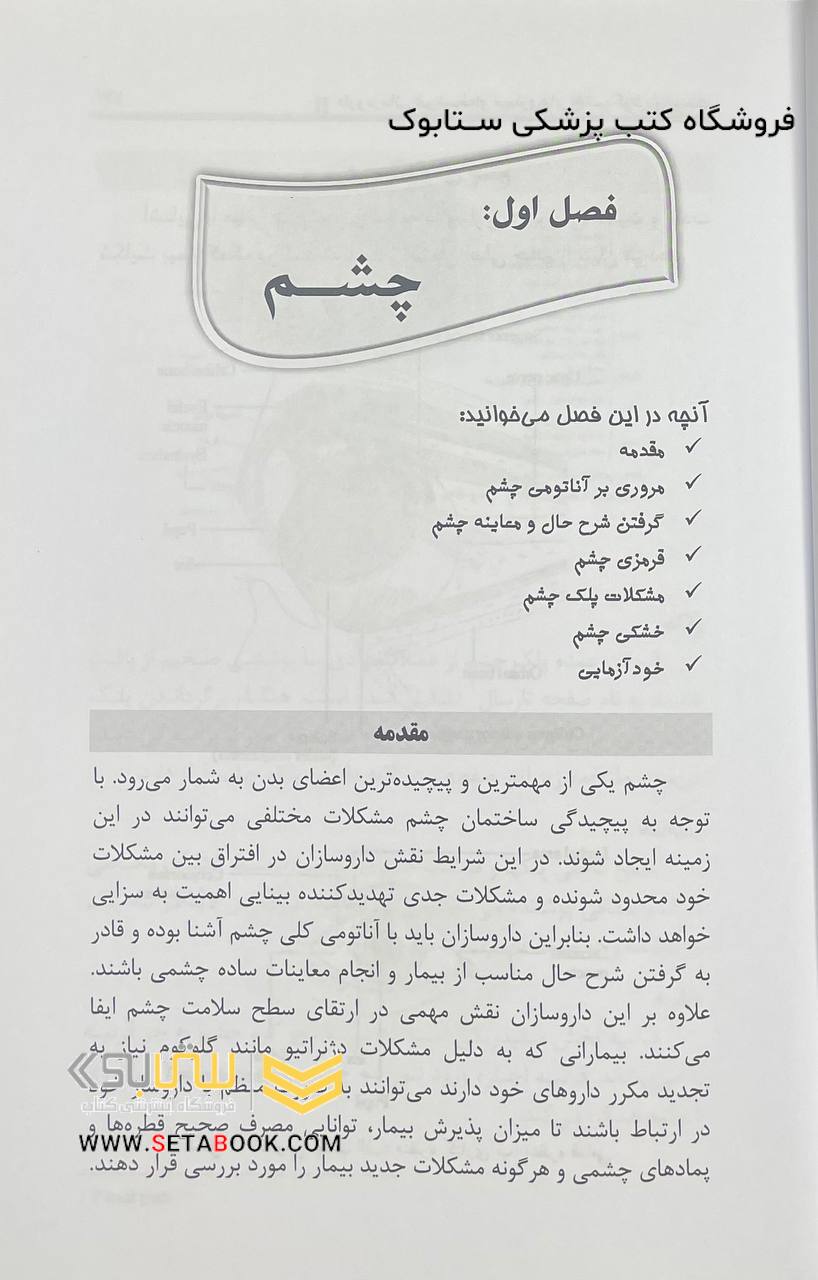 فروشگاه کتب پزشکی ستابوک
فصل اول:
چشم
آنچه در این فصل می‌خوانید:
✓ مقدمه
✓ مروری بر آناتومی چشم
✓ گرفتن شرح حال و معاینه چشم
✓ قرمزی چشم
✓ مشکلات پلک چشم
✓ خشکی چشم
✓ خودآزمایی
مقدمه
چشم یکی از مهمترین و پیچیده‌ترین اعضای بدن به شمار می‌رود. با
توجه به پیچیدگی ساختمان چشم مشکلات مختلفی می‌توانند در این
زمینه ایجاد شوند. در این شرایط نقش داروسازان در افتراق بین مشکلات
خود محدود شونده و مشکلات جدی تهدیدکننده بینایی اهمیت به سزایی
خواهد داشت. بنابراین داروسازان باید با آناتومی کلی چشم آشنا بوده و قادر
به گرفتن شرح حال مناسب از بیمار و انجام معاینات ساده چشمی باشند.
علاوه بر این داروسازان نقش مهمی در ارتقای سطح سلامت چشم ایفا
می‌کنند. بیمارانی که به دلیل مشکلات دژنراتیو مانند گلوکوم نیاز به
تجدید مکرر داروهای خود دارند می‌توانند به منظم با داروساز خود
در ارتباط باشند تا میزان پذیرش بیمار، توانایی مصرف صحیح قطره‌ها و
پمادهای چشمی و هرگونه مشکلات جدید بیمار را مورد بررسی قرار دهند.
فروشگاه اینترنتی کتاب
WWW.SETABOOK.COM